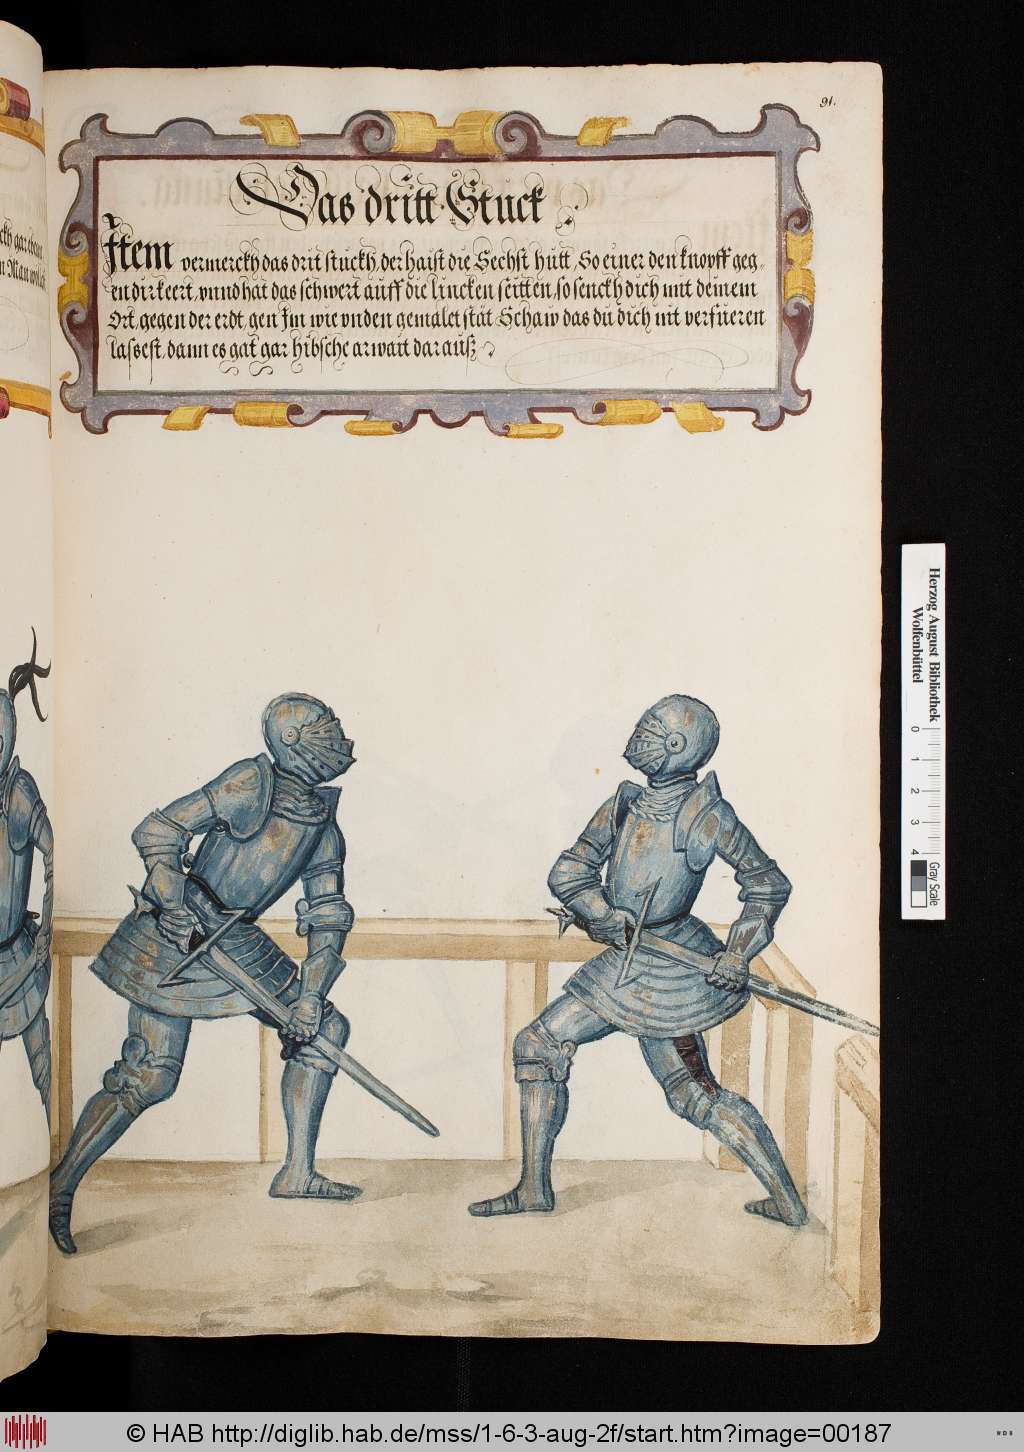 91.
Das dritt Stuck
Item vermerckh das drit stuckh, der haist die Sechst hutt, So einer den knopff geg„
en dir keert, vnnd hat das schwert auff die lincken seitten, so senckh dich mit deinem
Ort, gegen der erdt, gen Im wie vnden gemalet stat Schaw das du dich nit verfueren
lassest, dann es gat gar hibsche arwait darauß
ckh gar eben
n Man wolt
Herzog August Bibliothek
Wolfenbüttel
0 1 2 3 4
Gray Scale
© HAB http://diglib.hab.de/mss/1-6-3-aug-2f/start.htm?image=00187